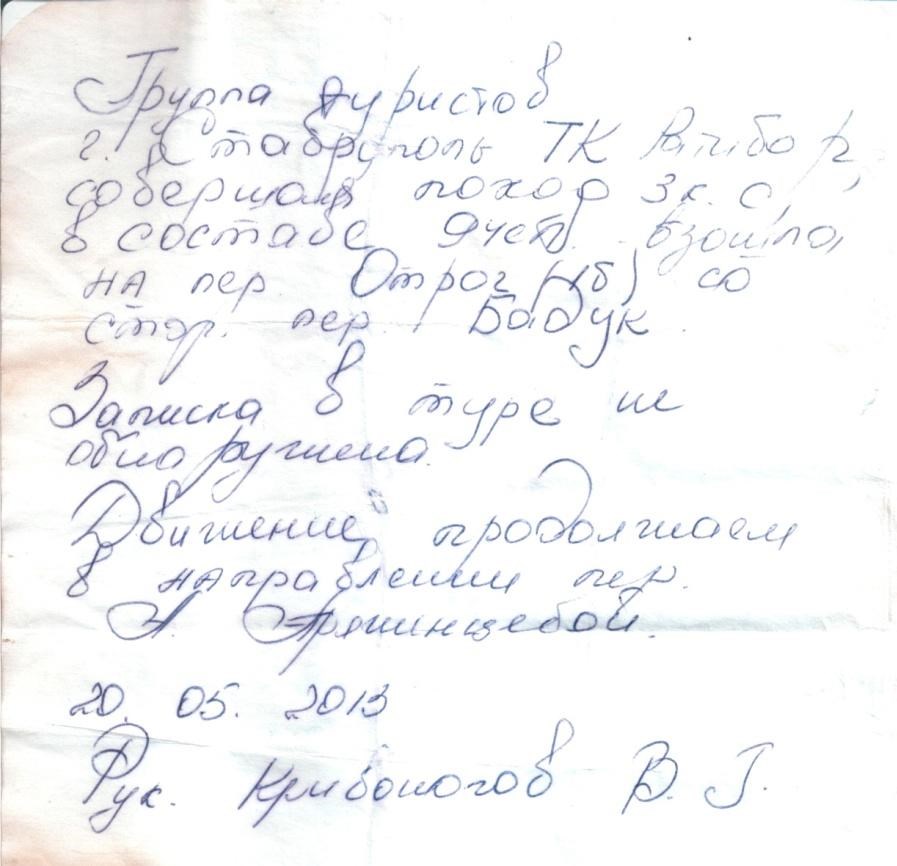 Группа туристов
г. Ставрополь ТК Ратибор,
совершая поход 3 к. с,
в составе 9 чел. взошла,
на пер. Отрог (1б) со
стор. пер. Бадук.
Записка в туре не
обнаружена.
Движение, продолжаем
в направлении пер.
А.
20. 05. 2013
Рук. Кривоногов В. Г.